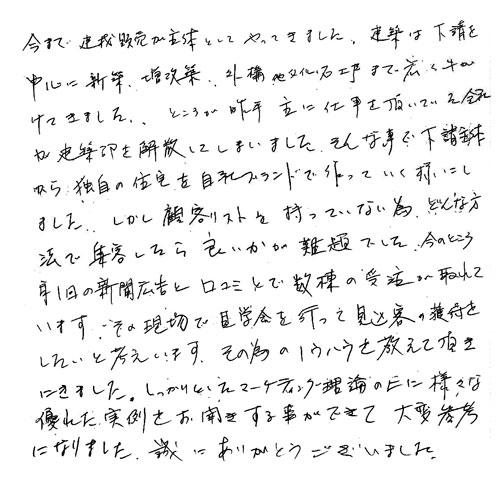 今まで 建売販売が主体として やってきました。建築は下請を
中心に新築、増改築、外構 他文化石工事まで広く手が
けてきました。ところが昨年 主に仕事を頂いていた会社
が建築部を解散してしまいました。そんな事で下請主体
から独自の住宅を自社ブランドで作っていく様にし
ました。しかし顧客リストを持っていない為、どんな方
法で集客したら良いかが難題でした。今のところ
月1回の新聞広告と口コミとで数棟の受注が取れて
います。その現場で見学会を行って見込客の獲得を
したいと考えています。その為のノウハウを教えて頂き
にきました。しっかりといたマーケティング理論の上に様々な
優れた実例をお聞きする事ができて 大変参考
になりました。誠にありがとうございました。